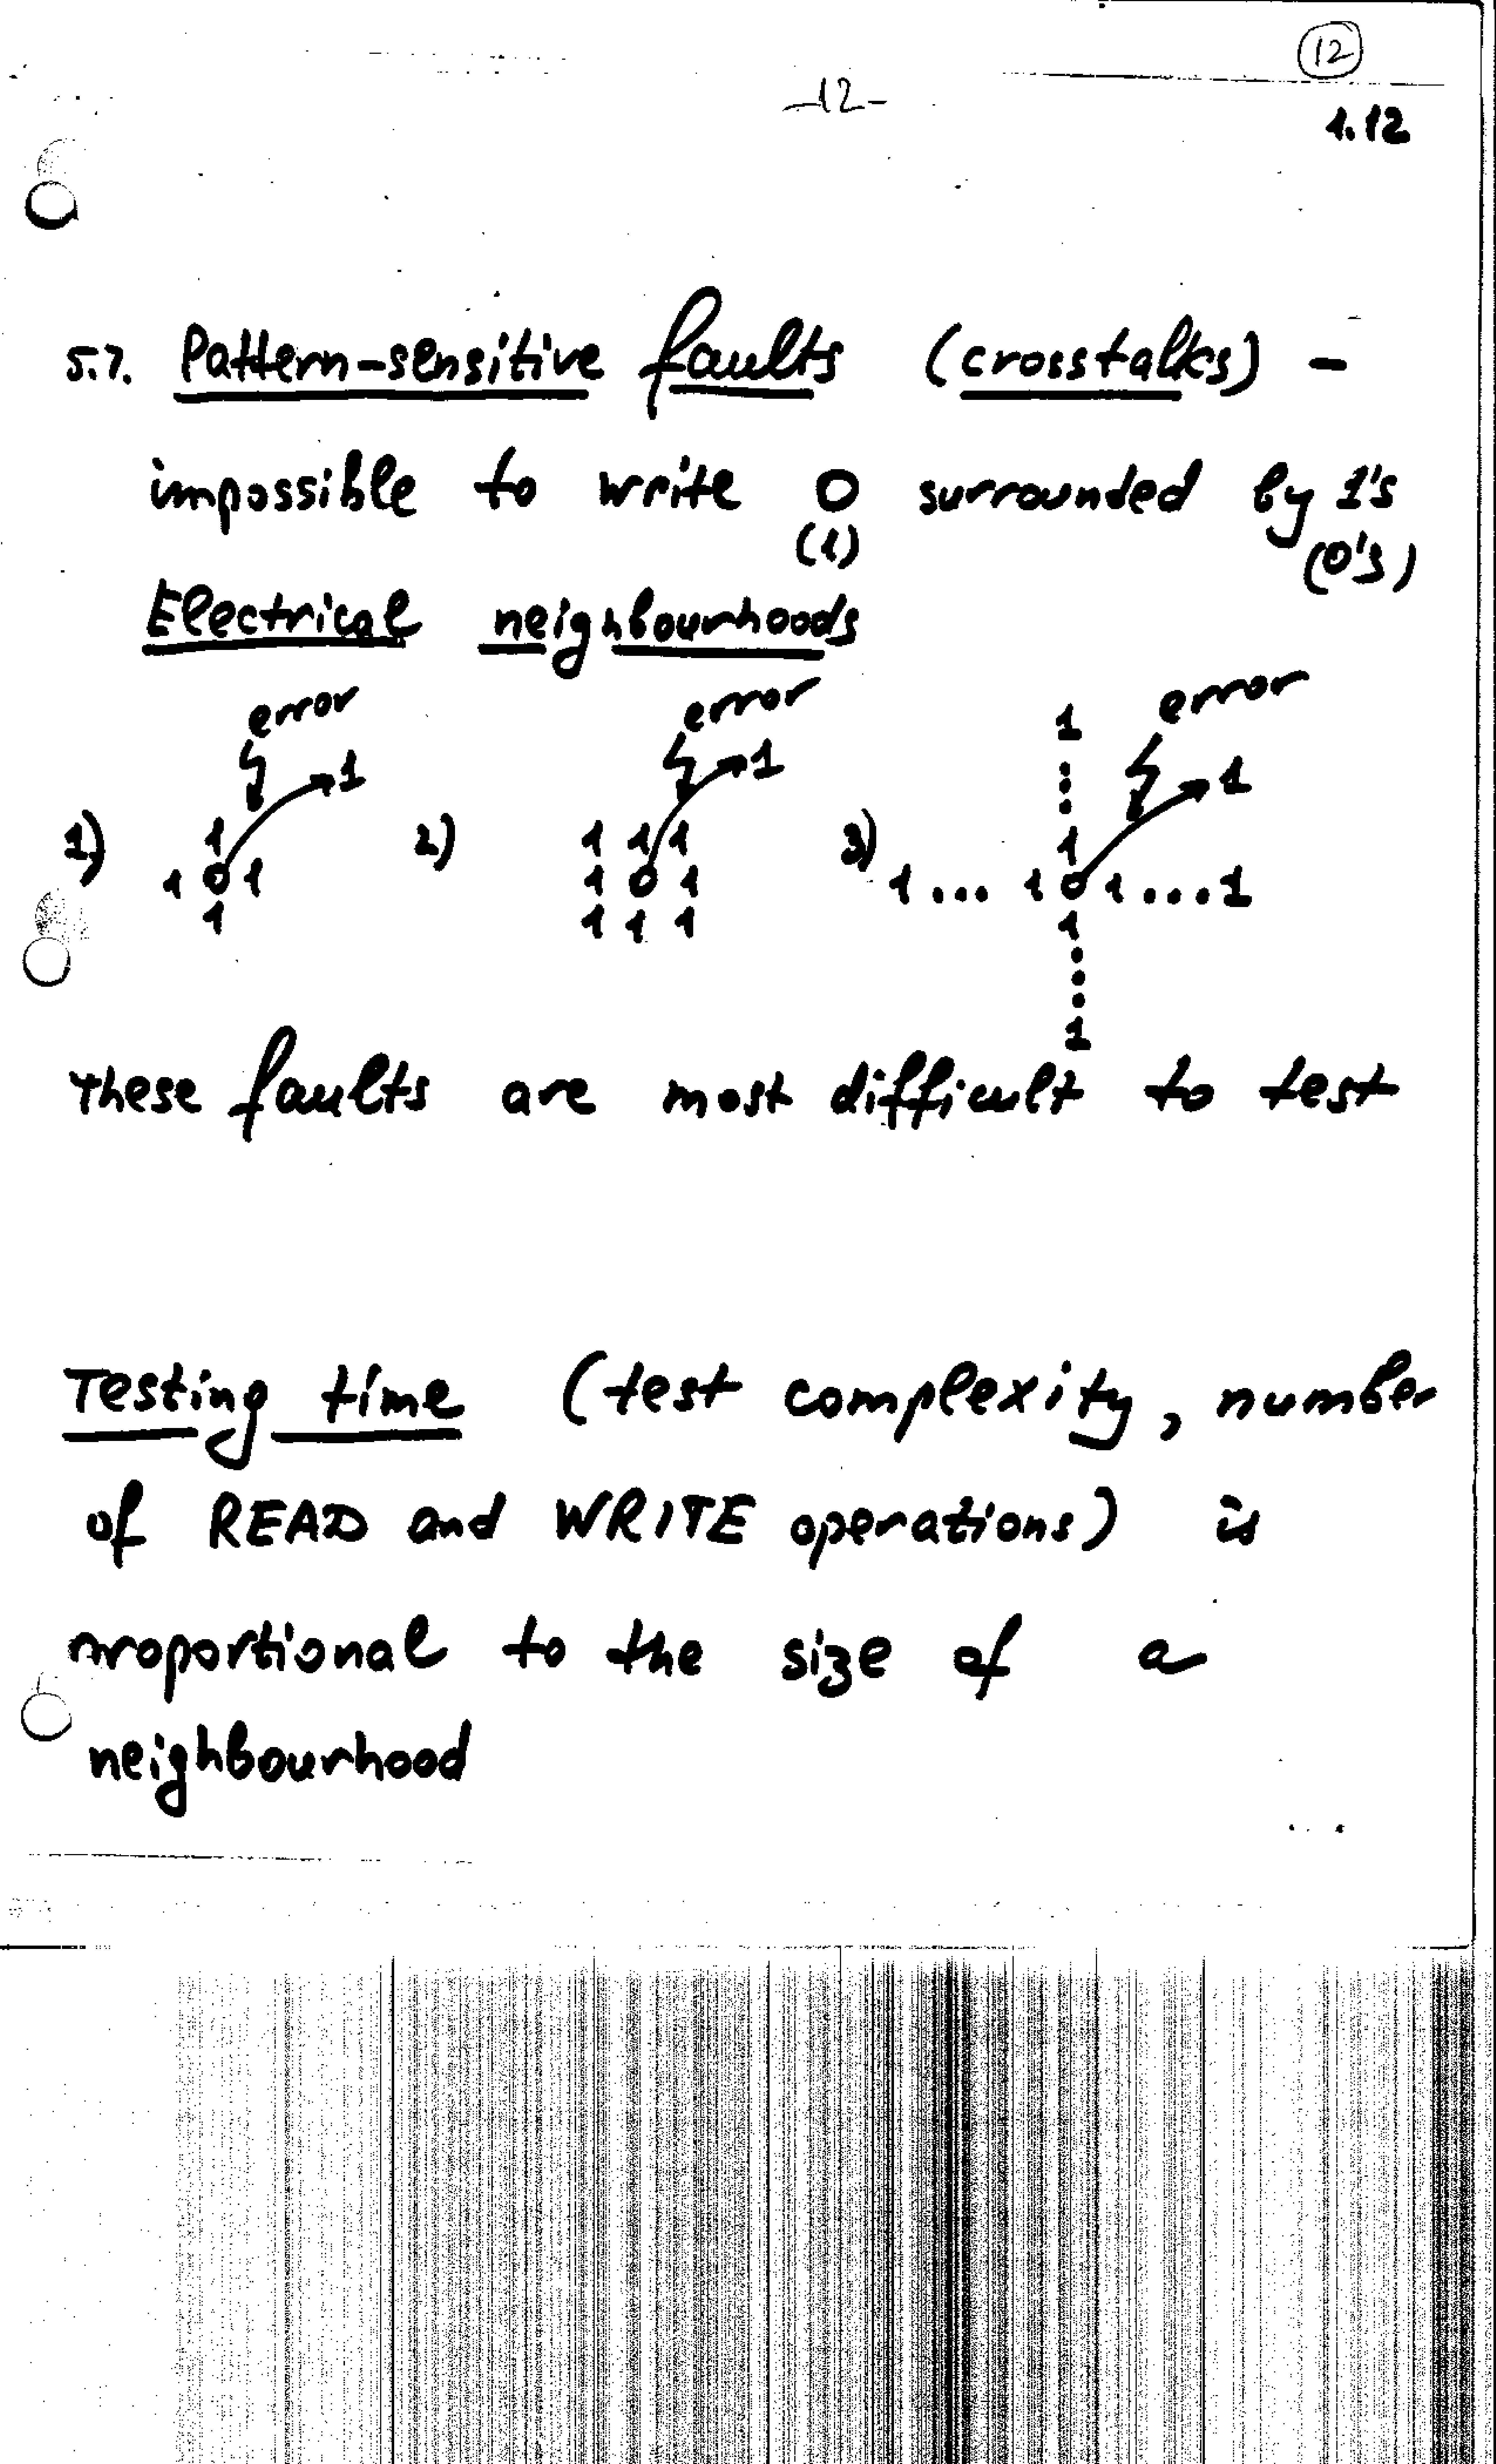 12
-12-
1.12
5.7. Pattern-sensitive faults (crosstalks) -
impossible to write 0 surrounded by 1's
(1) (0's)
Electrical neighbourhoods
error error 1 error
1 1 1
1) 1 2) 1 1 1 3) 1
1 0 1 1 0 1 1... 1 0 1....1
1 1 1 1 1
1
These faults are most difficult to test
Testing time (test complexity, number
of READ and WRITE operations) is
proportional to the size of a
neighbourhood